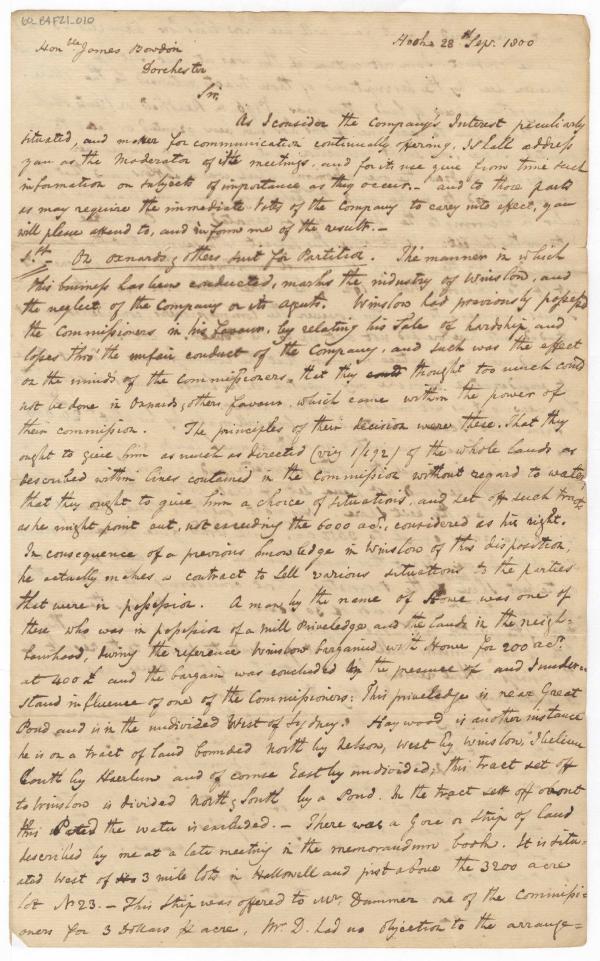 60_B4F21_010
Honble James Bowdoin
Hook 28th Sepr. 1800
Dorchester
Sir,
As I consider the Company's Interest peculiarly
situated, and matter for communication continually offering, I shall address
you as the Moderator of its meetings, and for its use give from time such
information on subjects of importance as they occur. – and to those parts
as may require the immediate Vote of the Company to carry into effect, you
will please attend to, and inform me of the results. –
1.st – On Oxnard & others suit for Partition. The manner in which
this business has been conducted, marks the industry of Winslow, and
the neglect of the Company or its Agents. Winslow had previously possess'd
the Commissioners in his favour, by relating his Tale of hardship and
losses thro' the unfair conduct of the Company, and such was the effect
on the minds of the Commissioners, that they could thought too much could
not be done in Oxnard & others favour, which came within the power of
their commission. The principles of their decision were these. That they
ought to give him as much as directed (viz 1/192) of the whole Lands as
described within lines contained in the Commission without regard to water,
that they ought to give him a choice of situations, and set off such tracts
as he might point out, not exceeding the 6000 acs., considered as his right.
In consequence of a previous knowledge in Winslow of this disposition,
he actually makes a contract to sell various situations to the parties
that were in possession. A man by the name of Howe was one of
these who was in possession of a Mill Priviledge and the lands in the neigh-
bourhood, during the reference Winslow bargained with Howe for 200 acs.
at 400 £ and the bargain was concluded by the presence of and I under-
stand influence of one of the Commissioners: This priviledge is near Great
Pond and is in the undivided West of Sydney. Haywood is another instance
he is on a tract of land bounded North by Nelson, West by Winslow, I believe
South by Haerlem and of course East by undivided; this tract set off
to Winslow is divided North & South by a Pond. In the tract set off about
this Pond the water is excluded. – There was a Gore or Strip of land
described by me at a late meeting in the memorandum book. It is situ-
ated West of 3 mile lots in Hallowell and just above the 3200 acre
lot No 23. – This Strip was offered to Mr. Dummer one of the Commissi-
oners for 3 Dollars pr acre, Mr. D. had no objection to the arrange=